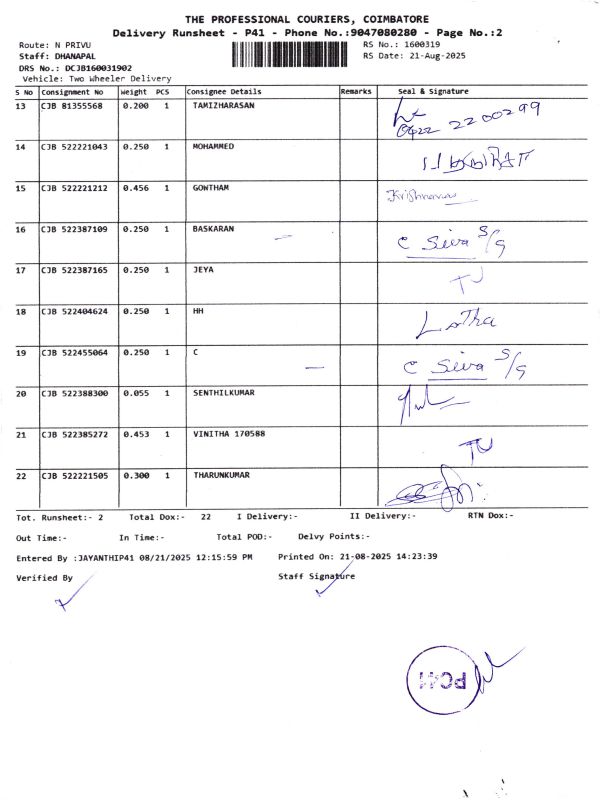 THE PROFESSIONAL COURIERS, COIMBATORE
Delivery Runsheet - P41 - Phone No.:9047080280 - Page No.:2
Route: N PRIVU RS No.: 1600319
Staff: DHANAPAL RS Date: 21-Aug-2025
DRS No.: DCJB160031902
Vehicle: Two Wheeler Delivery
S No Consignment No Weight PCS Consignee Details Remarks Seal & Signature
13 CJB 81355568 0.200 1 TAMIZHARASAN
0422 2200299
14 CJB 522221043 0.250 1 MOHAMMED
15 CJB 522221212 0.456 1 GONTHAM
16 CJB 522387109 0.250 1 BASKARAN C Siva S/G
17 CJB 522387165 0.250 1 JEYA TU
18 CJB 522404624 0.250 1 HH Latha
19 CJB 522455064 0.250 1 C C Siva S/G
20 CJB 522388300 0.055 1 SENTHILKUMAR
21 CJB 522385272 0.453 1 VINITHA 170588 TU
22 CJB 522221505 0.300 1 THARUNKUMAR
Tot. Runsheet:- 2 Total Dox:- 22 I Delivery:- II Delivery:- RTN Dox:-
Out Time:- In Time:- Total POD:- Delvy Points:-
Entered By :JAYANTHIP41 08/21/2025 12:15:59 PM Printed On: 21-08-2025 14:23:39
Verified By Staff Signature
PC41